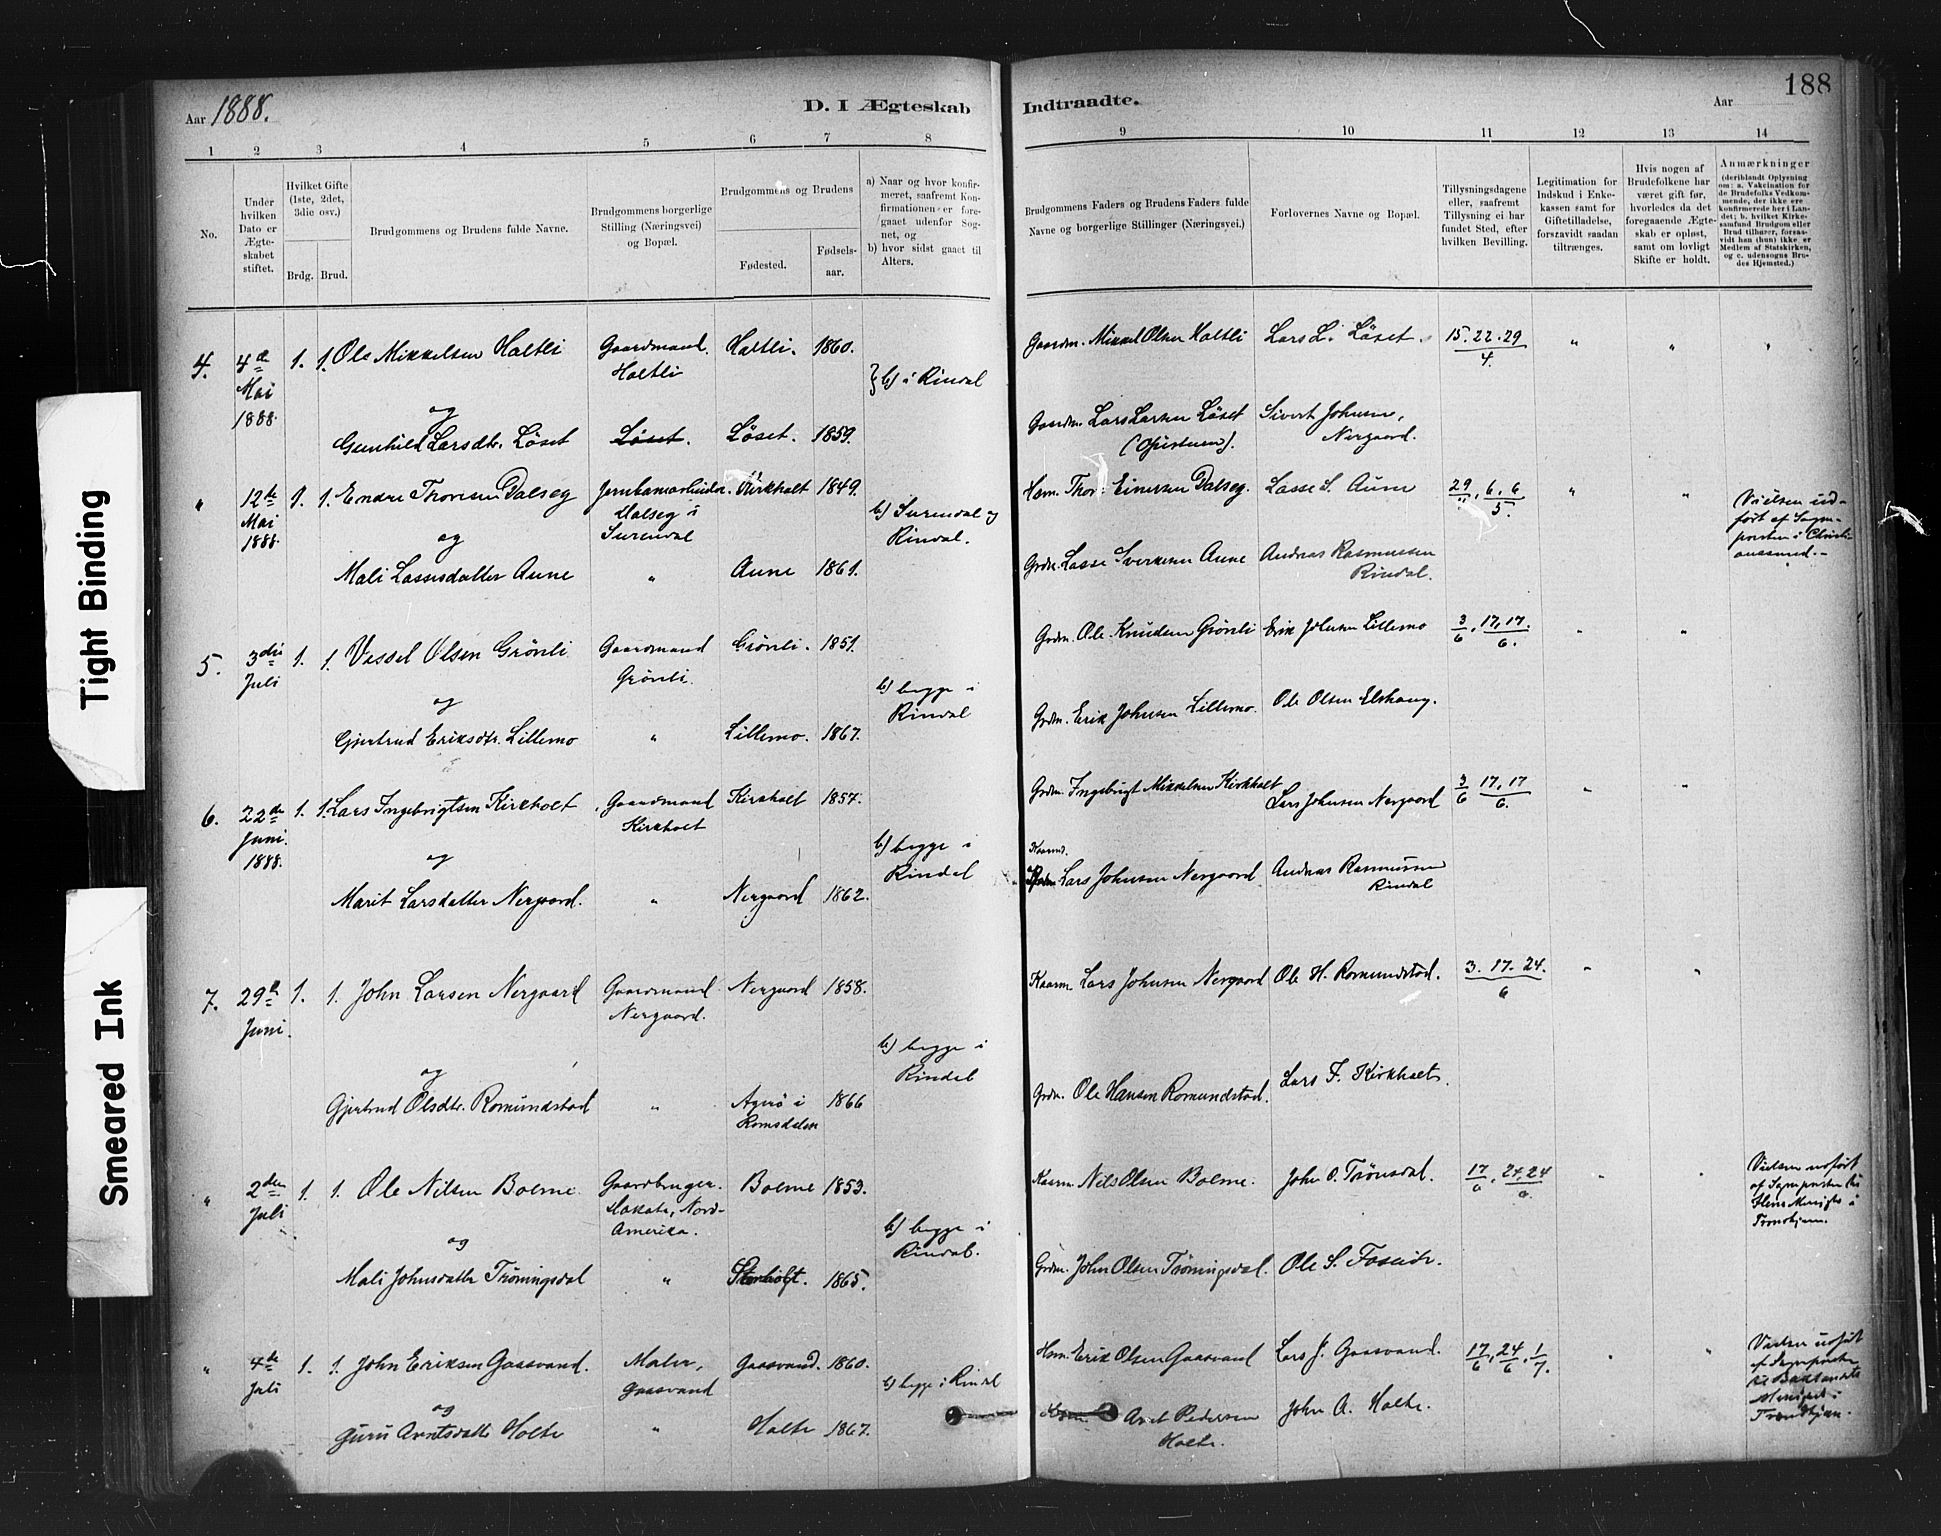 Tight Binding
Smeared Ink
Aar 1888.
D. I Ægteskab
Indtraadte.
Aar
188
1 2 3 4 5 6 7 8
9 10 11 12 13 14
No.
Under hvilken Dato er Ægteskabet stiftet.
Hvilket Gifte (1ste, 2det, 3die osv.)
Brdg. Brud.
Brudgommens og Brudens fulde Navne.
Brudgommens borgerlige Stilling (Næringsvei) og Bopæl.
Brudgommens og Brudens
Fødested.
Fødsels-aar.
a) Naar og hvor konfirmeret, saafremt Konfirmationen er foregaaet udenfor Sognet, og
b) hvor sidst gaaet til Alters.
Brudgommens Faders og Brudens Faders fulde Navne og borgerlige Stillinger (Næringsvei.)
Forlovernes Navne og Bopæl.
Tillysningsdagene eller, saafremt Tillysning ei har fundet Sted, efter hvilken Bevilling.
Legitimation for Indskud i Enkekassen samt for Giftetilladelse, forsavidt saadan tiltrænges.
Hvis nogen af Brudefolkene har været gift før, hvorledes da det foregaaende Ægteskab er opløst, samt om lovligt Skifte er holdt.
Anmærkninger
(deriblandt Oplysning om: a. Vakcination for de Brudefolks Vedkommende, der ikke ere konfirmerede her i Landet; b. hvilket Kirkesamfund Brudgom eller Brud tilhører, forsavidt han (hun) ikke er Medlem af Statskirken, og c. udensogns Brudes Hjemsted.)
4. 4de Mai 1888. 1. 1. Ole Mikkelsen Haltli Gaardmand. Holtli Haltli. 1860. b) i Rindal
Gaardm. Mikkel Olsen Haltli Lars L. Löset. 15. 22. 29/4. " " "
og
Gunhild Larsdtr. Löset Löset. Löset. 1859.
Gaardm. Lars Larsen Löset Sivert Johnsen, Nergaard.
" 12te Mai 1888. 1. 1. Endre Thoresen Dalseg Jernbanearbeider Dalseg i Surendal Kirkholt 1849. b) Surendal og Rindal.
Hsm. Thore Einersen Dalseg. Lasse S. Aune 29/4, 6, 6/5. " " Vielsen udført af Sognepresten i Christiansund.
og
Mali Lassesdatter Aune " Aune 1861.
Grdm. Lasse Sverkesen Aune Andreas Rasmussen Rindal.
5. 3die Juli 1. 1. Vessel Olsen Grönli Gaardmand Grönli. Grönli. 1851. b) begge i Rindal
Grdm. Ole Knudsen Grönli Erik Johnsen Lillemo 3/6, 17, 17/6. " "
og
Gjertrud Eriksdtr. Lillemo " Lillemo. 1867.
Grdm. Erik Johnsen Lillemo. Ole Olsen Elshaug.
6. 22de Juni. 1888. 1. 1. Lars Ingebrigtsen Kirkholt Gaardmand Kirkholt Kirkholt 1857. b) begge i Rindal
Grdm. Ingebrigt Mikkelsen Kirkholt Lars Johnsen Nergaard 3/6 17, 17/6. " "
og
Marit Larsdatter Nergaard. " Nergaard 1862.
Kaarmd. Lars Johnsen Nergaard Andreas Rasmussen Rindal
7. 29de Juni. 1. 1. John Larsen Nergaard Gaardmand Nergaard. Nergaard 1858. b) begge i Rindal
Kaarm. Lars Johnsen Nergaard Ole H. Romundstad. 3. 17. 24./6 " "
og
Gjertrud Olsdtr. Romundstad " Agerö i Romsdalen 1866
Grdm. Ole Hansen Romundstad. Lars F. Kirkholt.
" 2den Juli 1. 1. Ole Nilsen Bolme Gaardbruger. Dakota, Nord-Amerika. Bolme 1853. b) begge i Rindal.
Kaarm. Nils Olsen Bolme. John O. Trönsdal. 17/6, 24, 24/6. " " Vielsen udført af Sognepresten til Menighed i Trondhjem.
og
Mali Johnsdatter Tröningsdal " Stenholt. 1865.
Grdm. John Olsen Tröningsdal. Ole S. Foseide.
" 4de Juli 1. 1. John Eriksen Gaasvand. Maler, Gaasvand Gaasvand. 1860. b) begge i Rindal
Hsm. Erik Olsen Gaasvand Lars J. Gaasvand. 17/6, 24/6, 1/7. " " Vielsen udført af Sognepresten til Baklandets Menighed i Trondhjem.
og
Guru Arntsdatter Holte " Holte 1867.
Hsm. Arnt Pedersen Holte. John A. Holte.